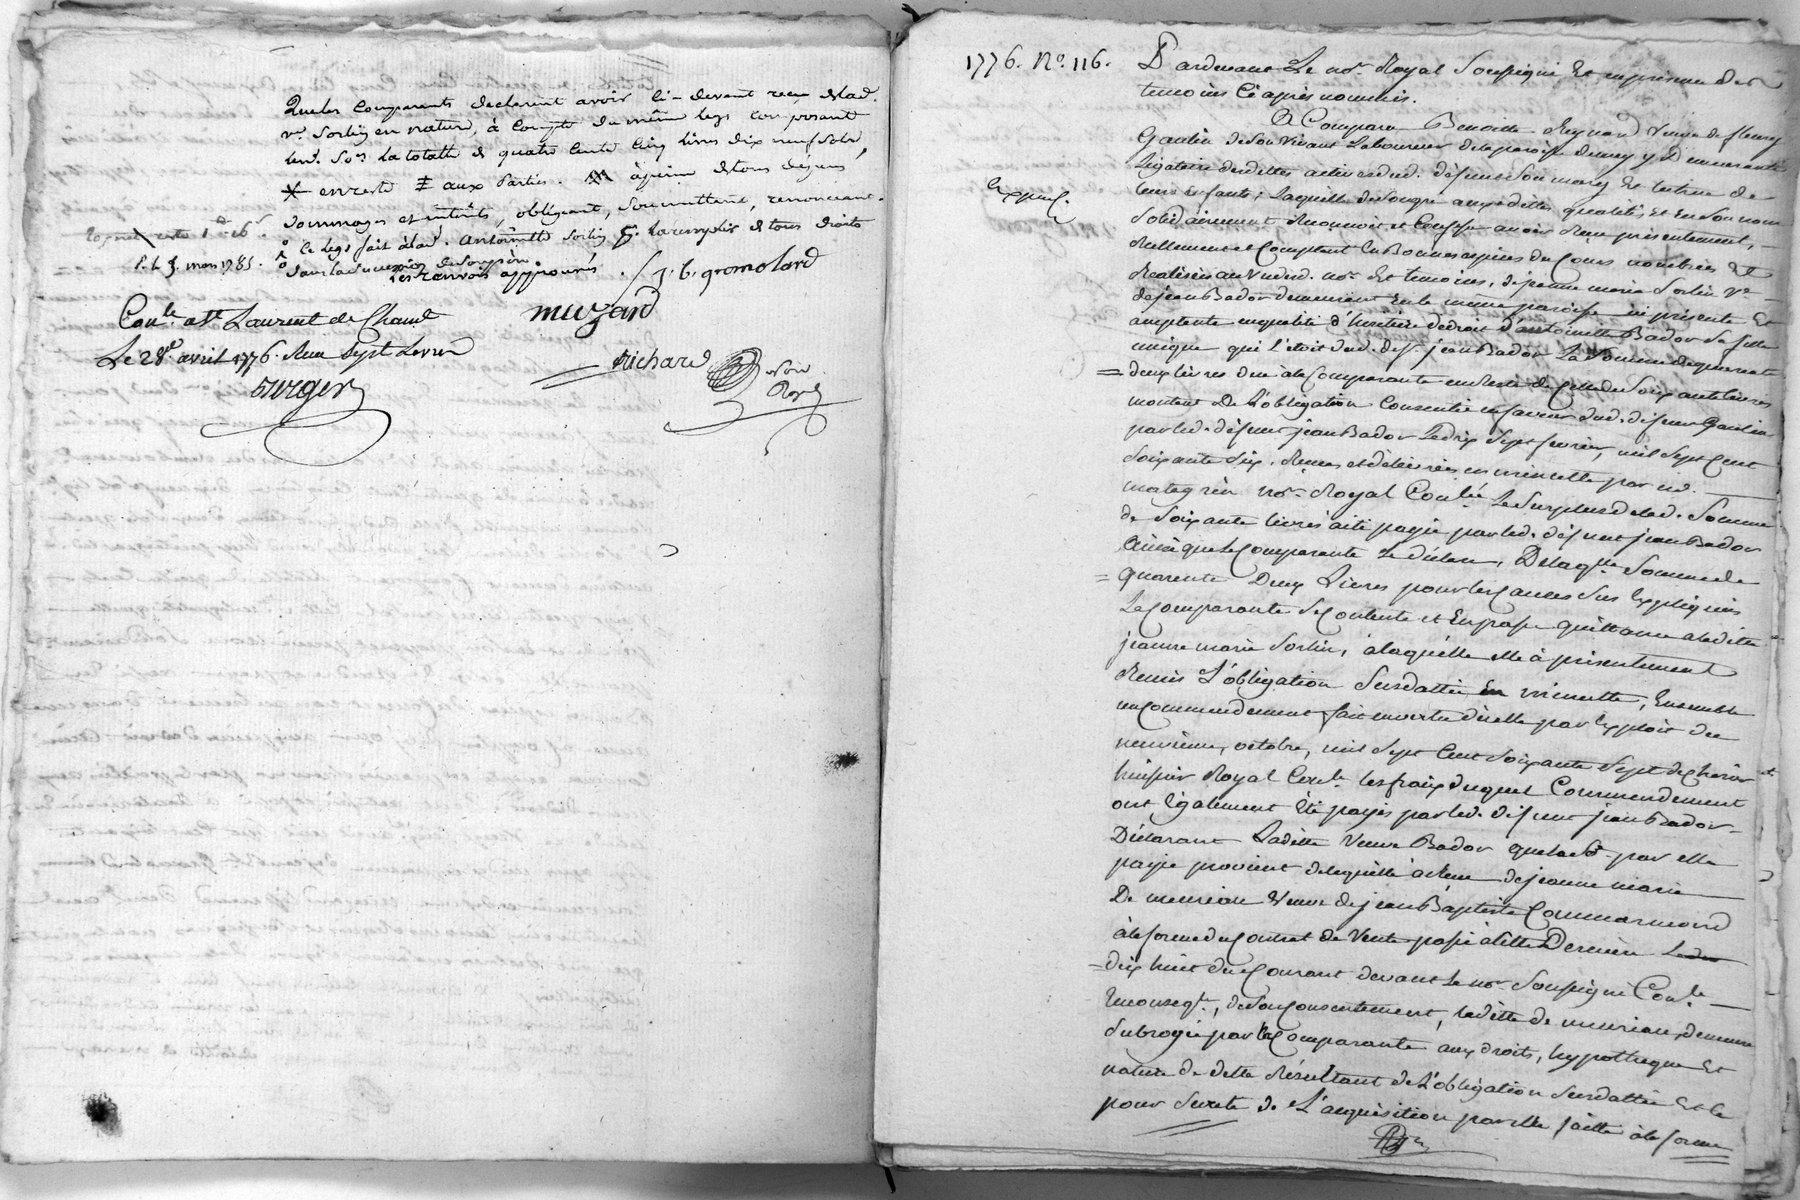 que les comparants declarent avoir ci-devant reçu de lad.
ve. Sorlin en nature, à compte du même legs composant
lesd. Srs la totalle de quatre cents cinq livres dix neuf sols,
en reste aux parties. à peine de tous dépens
dommages et intérêts, obligeant, soumettant, renonçant.
le legs fait à lad. Antoinette Sorlin tous droits
dans la succession de son père
les renvois approuvés. J. b. gromolard
mars 1785.
Conle. a St Laurent de Chamt
muzard
Le 28e. avril 1776. Reçu sept livres
Richard
Surger
1776. No. 116. Pardevant Le nore. Royal Soussigné Et en presence des
temoins Cy après nommés.
A Comparu Benoitte Reynard Veuve de fleury
Gaulin de son vivant Laboureur de la paroisse de y Demeurante
Légataire des dettes actives dud. défunt son mary Et tutrice de
leurs enfants; Laquelle de son gré auxdittes qualités Et En son nom
Expiée.
Solidairement Reconnoit et Confesse avoir Reçu présentement,
Reellement et Comptant En Bonnes espèces du Cours nombrées Et
Réalisées au Vû dud. nore. Et temoins, de jeanne marie Sorlin Ve.
de jean Bador demeurant En la même paroisse ici présente Et
acceptante en qualité d'héritière de droit d'antoinette Bador sa fille
unique qui L'étoit dud. deft. jean Bador La Somme de quarente
deux livres due à la Comparante en Reste de Celle de Soixante livres
montant De L'obligation Consentie en faveur dud. défunt Gaulin
par led. défunt jean Bador Le dix Sept fevrier, mil Sept Cent
Soixante Six. Reçue et délivrée en minutte par me.
nore. Royal Conlée Le Surplus de lad. Somme
de Soixante livres a été payé par led. défunt jean Bador
Ainsi que la Comparante Le déclare, De laqle. Somme de
quarente Deux Livres pour les Causes Sus Expliquées
La Comparante Se Contente et En passe quittance a laditte
jeanne marie Sorlin, à laquelle elle à présentement
Remis L'obligation Susdattée En minutte, Ensemble
un Commendement fait en vertu d'icelle par Exploit du
neuvieme octobre, mil Sept Cent Soixante Sept de
huissier Royal Conle. les fraix duquel Commendement
ont Egalement Eté payés par led. défunt jean Bador.
Déclarant Laditte Veuve Bador que la Se. par elle
payée provient de la de jeanne marie
De meuriau Veuve de jean Baptiste Commarmond
à la forme du Contrat de Vente passé à cette Derniere
dix huit du Courant devant Le nore. Soussigné Conle.
En conseqe., de Son Consentement, laditte de meuriau demeure
Subrogée par la Comparante aux droits, hypotheque Et
nature de dette Résultant de L'obligation Susdattée Et le
pour Sureté de L'acquisition par elle faitte à la forme